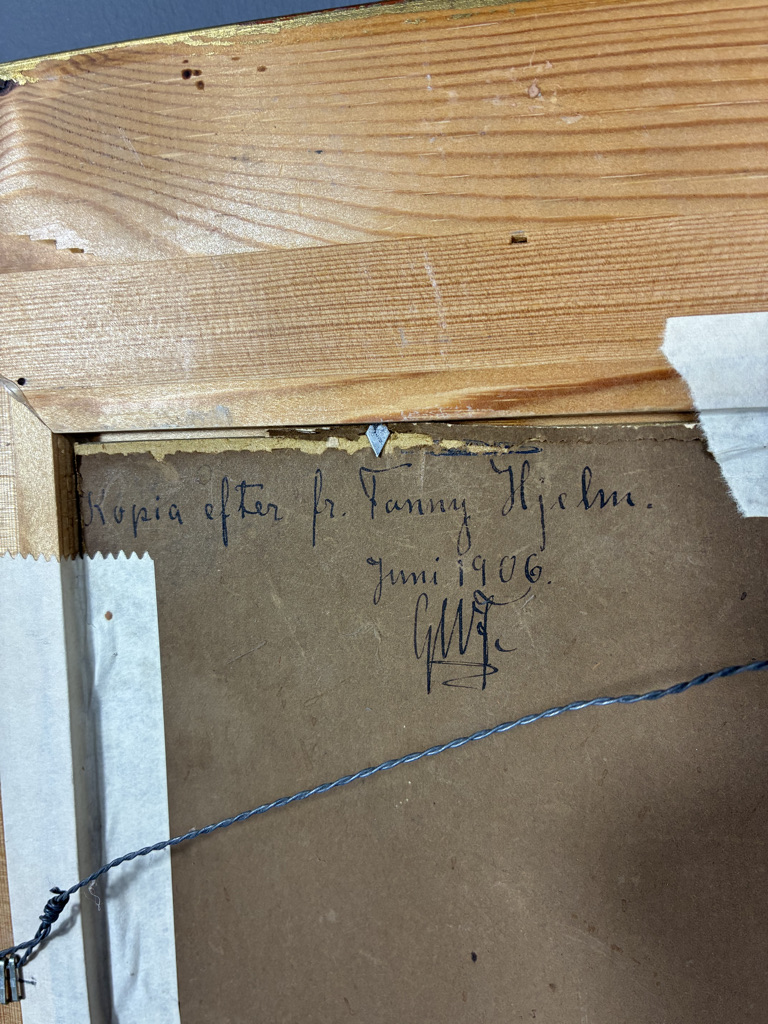 Kopia efter fr. Fanny Hjelm.
Juni 1906.
GWF.